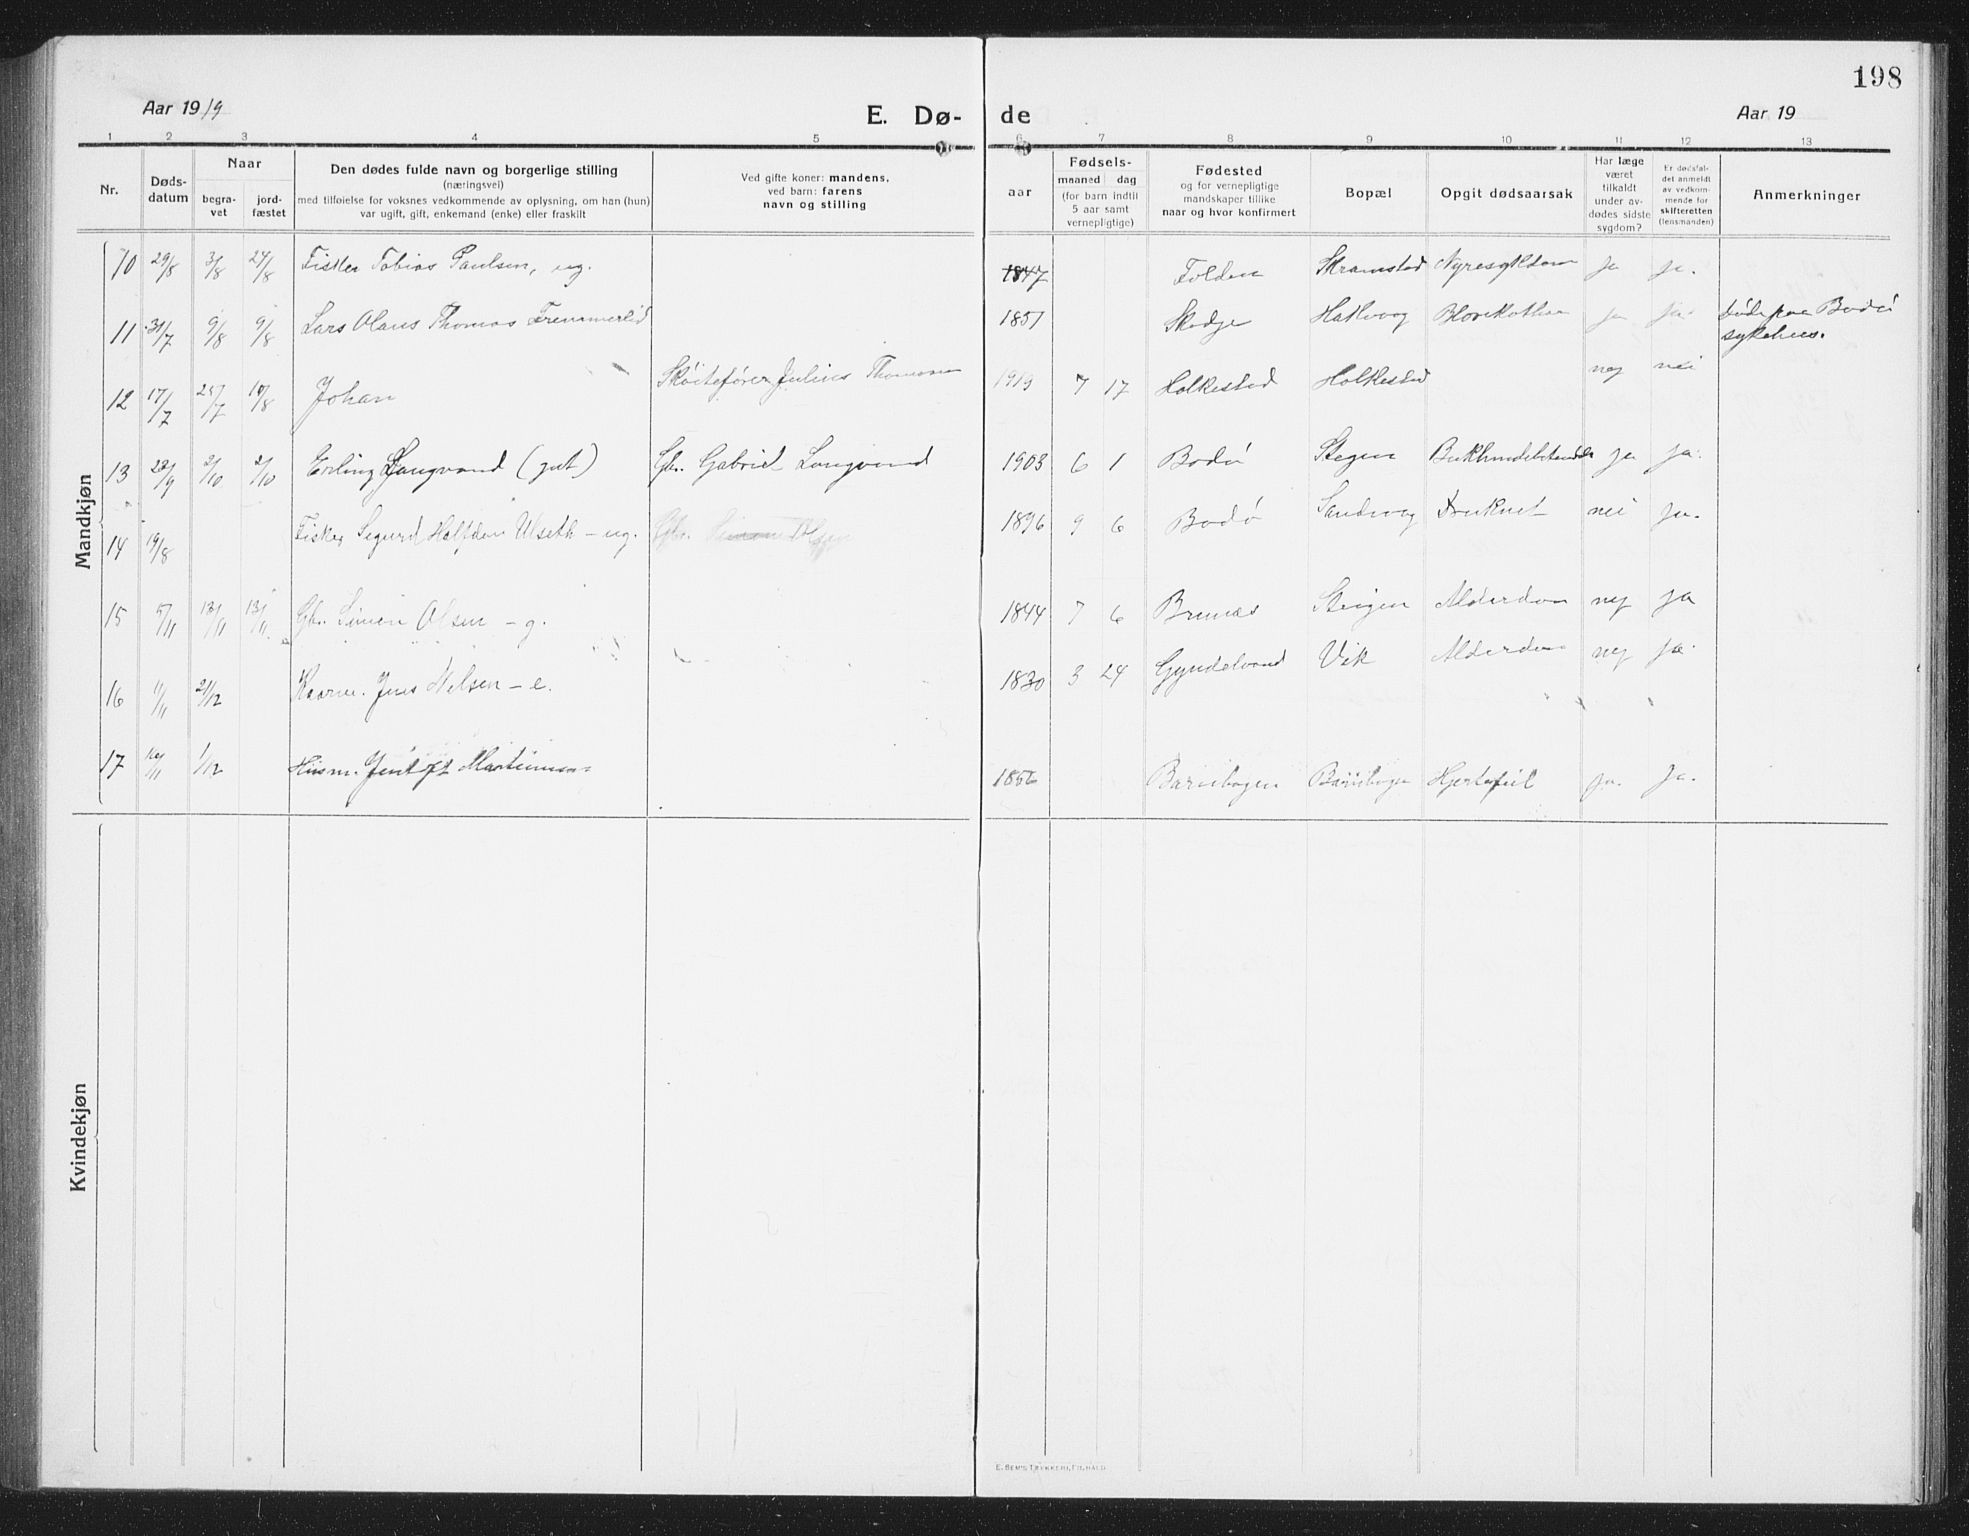 198
Aar 1919
E. Dø-
de
Aar 19
1 2 3 4 5 6 7 8 9 10 11 12 13
Nr.
Døds-
datum
Naar
begra-
vet
jord-
fæstet
Den dødes fulde navn og borgerlige stilling
(næringsvei)
med tilføielse for voksnes vedkommende av oplysning, om han (hun)
var ugift, gift, enkemand (enke) eller fraskilt
Ved gifte koner: mandens,
ved barn: farens
navn og stilling
aar
Fødsels-
maaned dag
(for barn indtil
5 aar samt
vernepligtige)
Fødested
og for vernepligtige
mandskaper tillike
naar og hvor konfirmert
Bopæl
Opgit dødsaarsak
Har læge
været
tilkaldt
under av-
dødes sidste
sygdom?
Er dødsfal-
det anmeldt
av vedkom-
mende for
skifteretten
(lensmanden)
Anmerkninger
Mandkjøn
10 29/8 3/8 24/8 Fisker Tobias Paulsen, ug. 1847 Folden Skramstad Nyresykdom ja ja.
11 31/7 9/8 9/8 Lars Olaus Thomas 1851 Skodje ja ja døde paa Bodø
sykehus.
12 17/7 25/7 10/8 Johan Skøitefører Julius Thomassen 1919 7 17 Holkestad Holkestad nej nei
13 22/9 2/10 2/10 Erling Langvand (gut) Gbr. Gabriel Langvand 1903 6 1 Bodø Stegen ja ja.
14 19/8 Fisker Sigurd Halfdan Ulseth - ug. Gbr. Simon Olsen 1896 9 6 Bodø Sandvog Druknet nei ja.
15 5/11 13/11 13/11 Gbr. Simon Olsen - g. 1844 7 6 Brunæs Steigen Alderdom nej ja
16 11/11 21/12 Kaarm. Jens Nilsen - e. 1830 3 24 Vik Alderdom nej ja.
17 1/12 Husm. Jentoft Martinussen 1856 Barnbogen Hjertefeil ja. ja.
Kvindekjøn
E. SEM'S TRYKKERI, FR.HALD